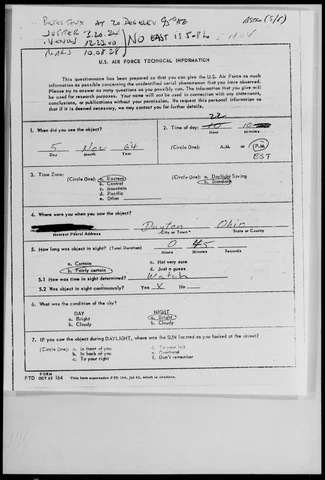 AT 20 DEG ELEV 95° AZ
JUPITER 3.20.24
VENUS 12.22.40 NO EAST IS 5-8 h
MARS 10.08.28
U.S. AIR FORCE TECHNICAL INFORMATION
This questionnaire has been prepared so that you can give the U.S. Air Force as much
information as possible concerning the unidentified aerial phenomenon that you have observed.
Please try to answer as many questions as you possibly can. The information that you give will
be used for research purposes. Your name will not be used in connection with any statements,
conclusions, or publications without your permission. We request this personal information so
that if it is deemed necessary, we may contact you for further details.
1. When did you see the object?
5 Nov 64
Day Month Year
2. Time of day: 22 10
Hour Minutes
(Circle One): A.M. or P.M.
EST
3. Time Zone:
(Circle One): a. Eastern
b. Central
c. Mountain
d. Pacific
e. Other
(Circle One): a. Daylight Saving
b. Standard
4. Where were you when you saw the object?
Dayton Ohio
Nearest Postal Address City or Town State or County
5. How long was object in sight? (Total Duration) 0 45
Hours Minutes Seconds
a. Certain c. Not very sure
b. Fairly certain d. Just a guess
5.1 How was time in sight determined? Watch
5.2 Was object in sight continuously? Yes X No
6. What was the condition of the sky?
DAY NIGHT
a. Bright a. Bright
b. Cloudy b. Cloudy
7. IF you saw the object during DAYLIGHT, where was the SUN located as you looked at the object?
(Circle One): a. In front of you d. To your left
b. In back of you e. Overhead
c. To your right f. Don't remember
FORM
FTD OCT 62 164 This form supersedes FTD 164, Jul 61, which is obsolete.